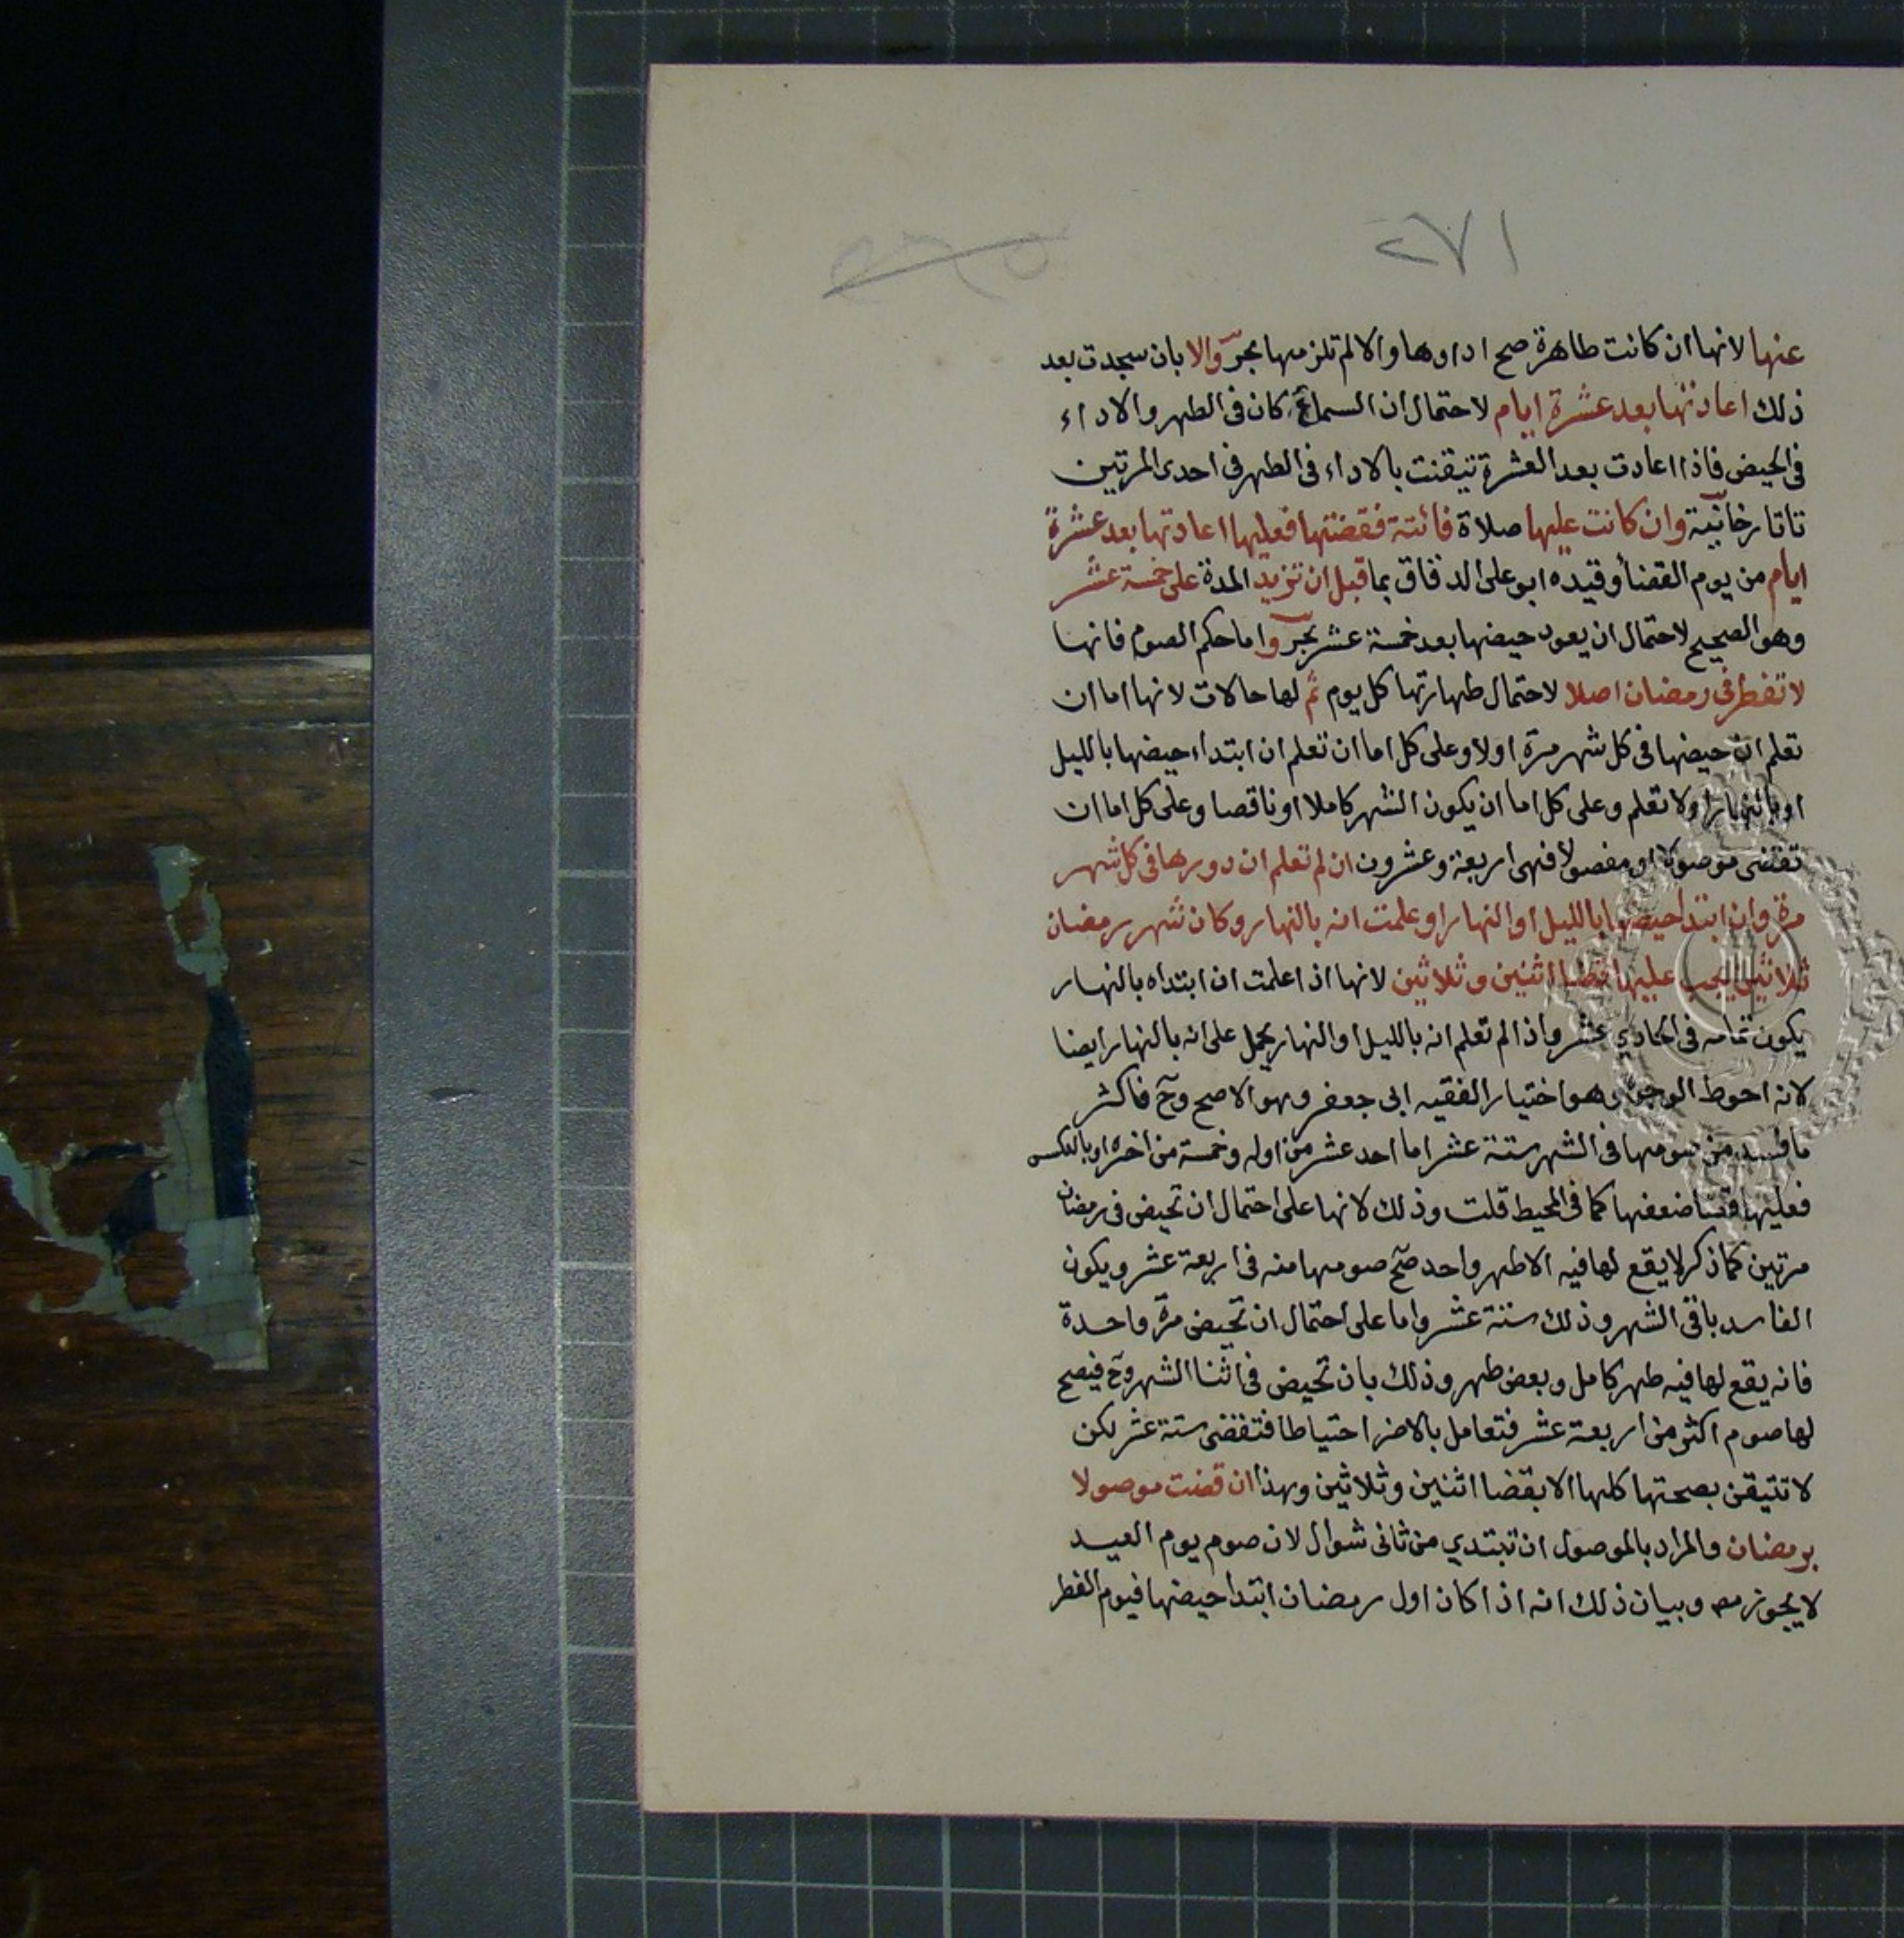 ٢٧١
عنها لانها ان كانت طاهرة صح اداوها والا لم تلزمها بحر والا بان سجدت بعد
ذلك اعادتها بعد عشرة ايام لاحتمال ان السماع كان في الطهر والاداء
في الحيض فاذا اعادت بعد العشرة تيقنت بالاداء في الطهر في احدى المرتين
تاتارخانية وان كانت عليها صلاة فائتة فقضتها فعليها اعادتها بعد عشرة
ايام من يوم القضأ وقيده ابو على الدقاق بما قبل ان تزيد المدة على خمسة عشر
وهو الصحيح لاحتمال ان يعود حيضها بعد خمسة عشر بحر واما حكم الصوم فانها
لا تفطر في رمضان اصلا لاحتمال طهارتها كل يوم ثم لها حالات لانها اما ان
تعلم ان حيضها في كل شهر مرة اولا وعلى كل اما ان تعلم ان ابتداء حيضها بالليل
او بالنهار او لا تعلم وعلى كل اما ان يكون الشهر كاملا او ناقصا وعلى كل اما ان
تقضى موصولا او مفصولا فهى اربعة وعشرون ان لم تعلم ان دورها في كل شهر
مرة وان ابتدا حيضها بالليل او النهار او علمت انه بالنهار وكان شهر رمضان
ثلاثين يجب عليها قضا اثنين وثلاثين لانها اذا علمت ان ابتداه بالنهار
يكون تمامه في الحادي عشر واذا لم تعلم انه بالليل او النهار يحمل على انه بالنهار ايضا
لانه احوط الوجوه وهو اختيار الفقيه ابى جعفر وهو الاصح وح فاكثر
ما فسد من صومها في الشهر ستة عشر اما احد عشر من اوله وخمسة من اخره او بالعكس
فعليها قضا ضعفها كما في المحيط قلت وذلك لانها على احتمال ان تحيض في رمضان
مرتين كما ذكر لا يقع لها فيه الا طهر واحد صح صومها منه في اربعة عشر ويكون
الفاسد باقى الشهر وذلك ستة عشر واما على احتمال ان تحيض مرة واحدة
فانه يقع لها فيه طهر كامل وبعض طهر وذلك بان تحيض في اثنا الشهر وح فيصح
لها صوم اكثر من اربعة عشر فتعامل بالاضر احتياطا فتقضى ستة عشر لكن
لا تتيقن بصحتها كلها الا بقضا اثنين وثلاثين وهذا ان قضت موصولا
برمضان والمراد بالموصول ان تبتدي من ثانى شوال لان صوم يوم العيد
لا يجوز مص وبيان ذلك انه اذا كان اول رمضان ابتدا حيضها فيوم الفطر